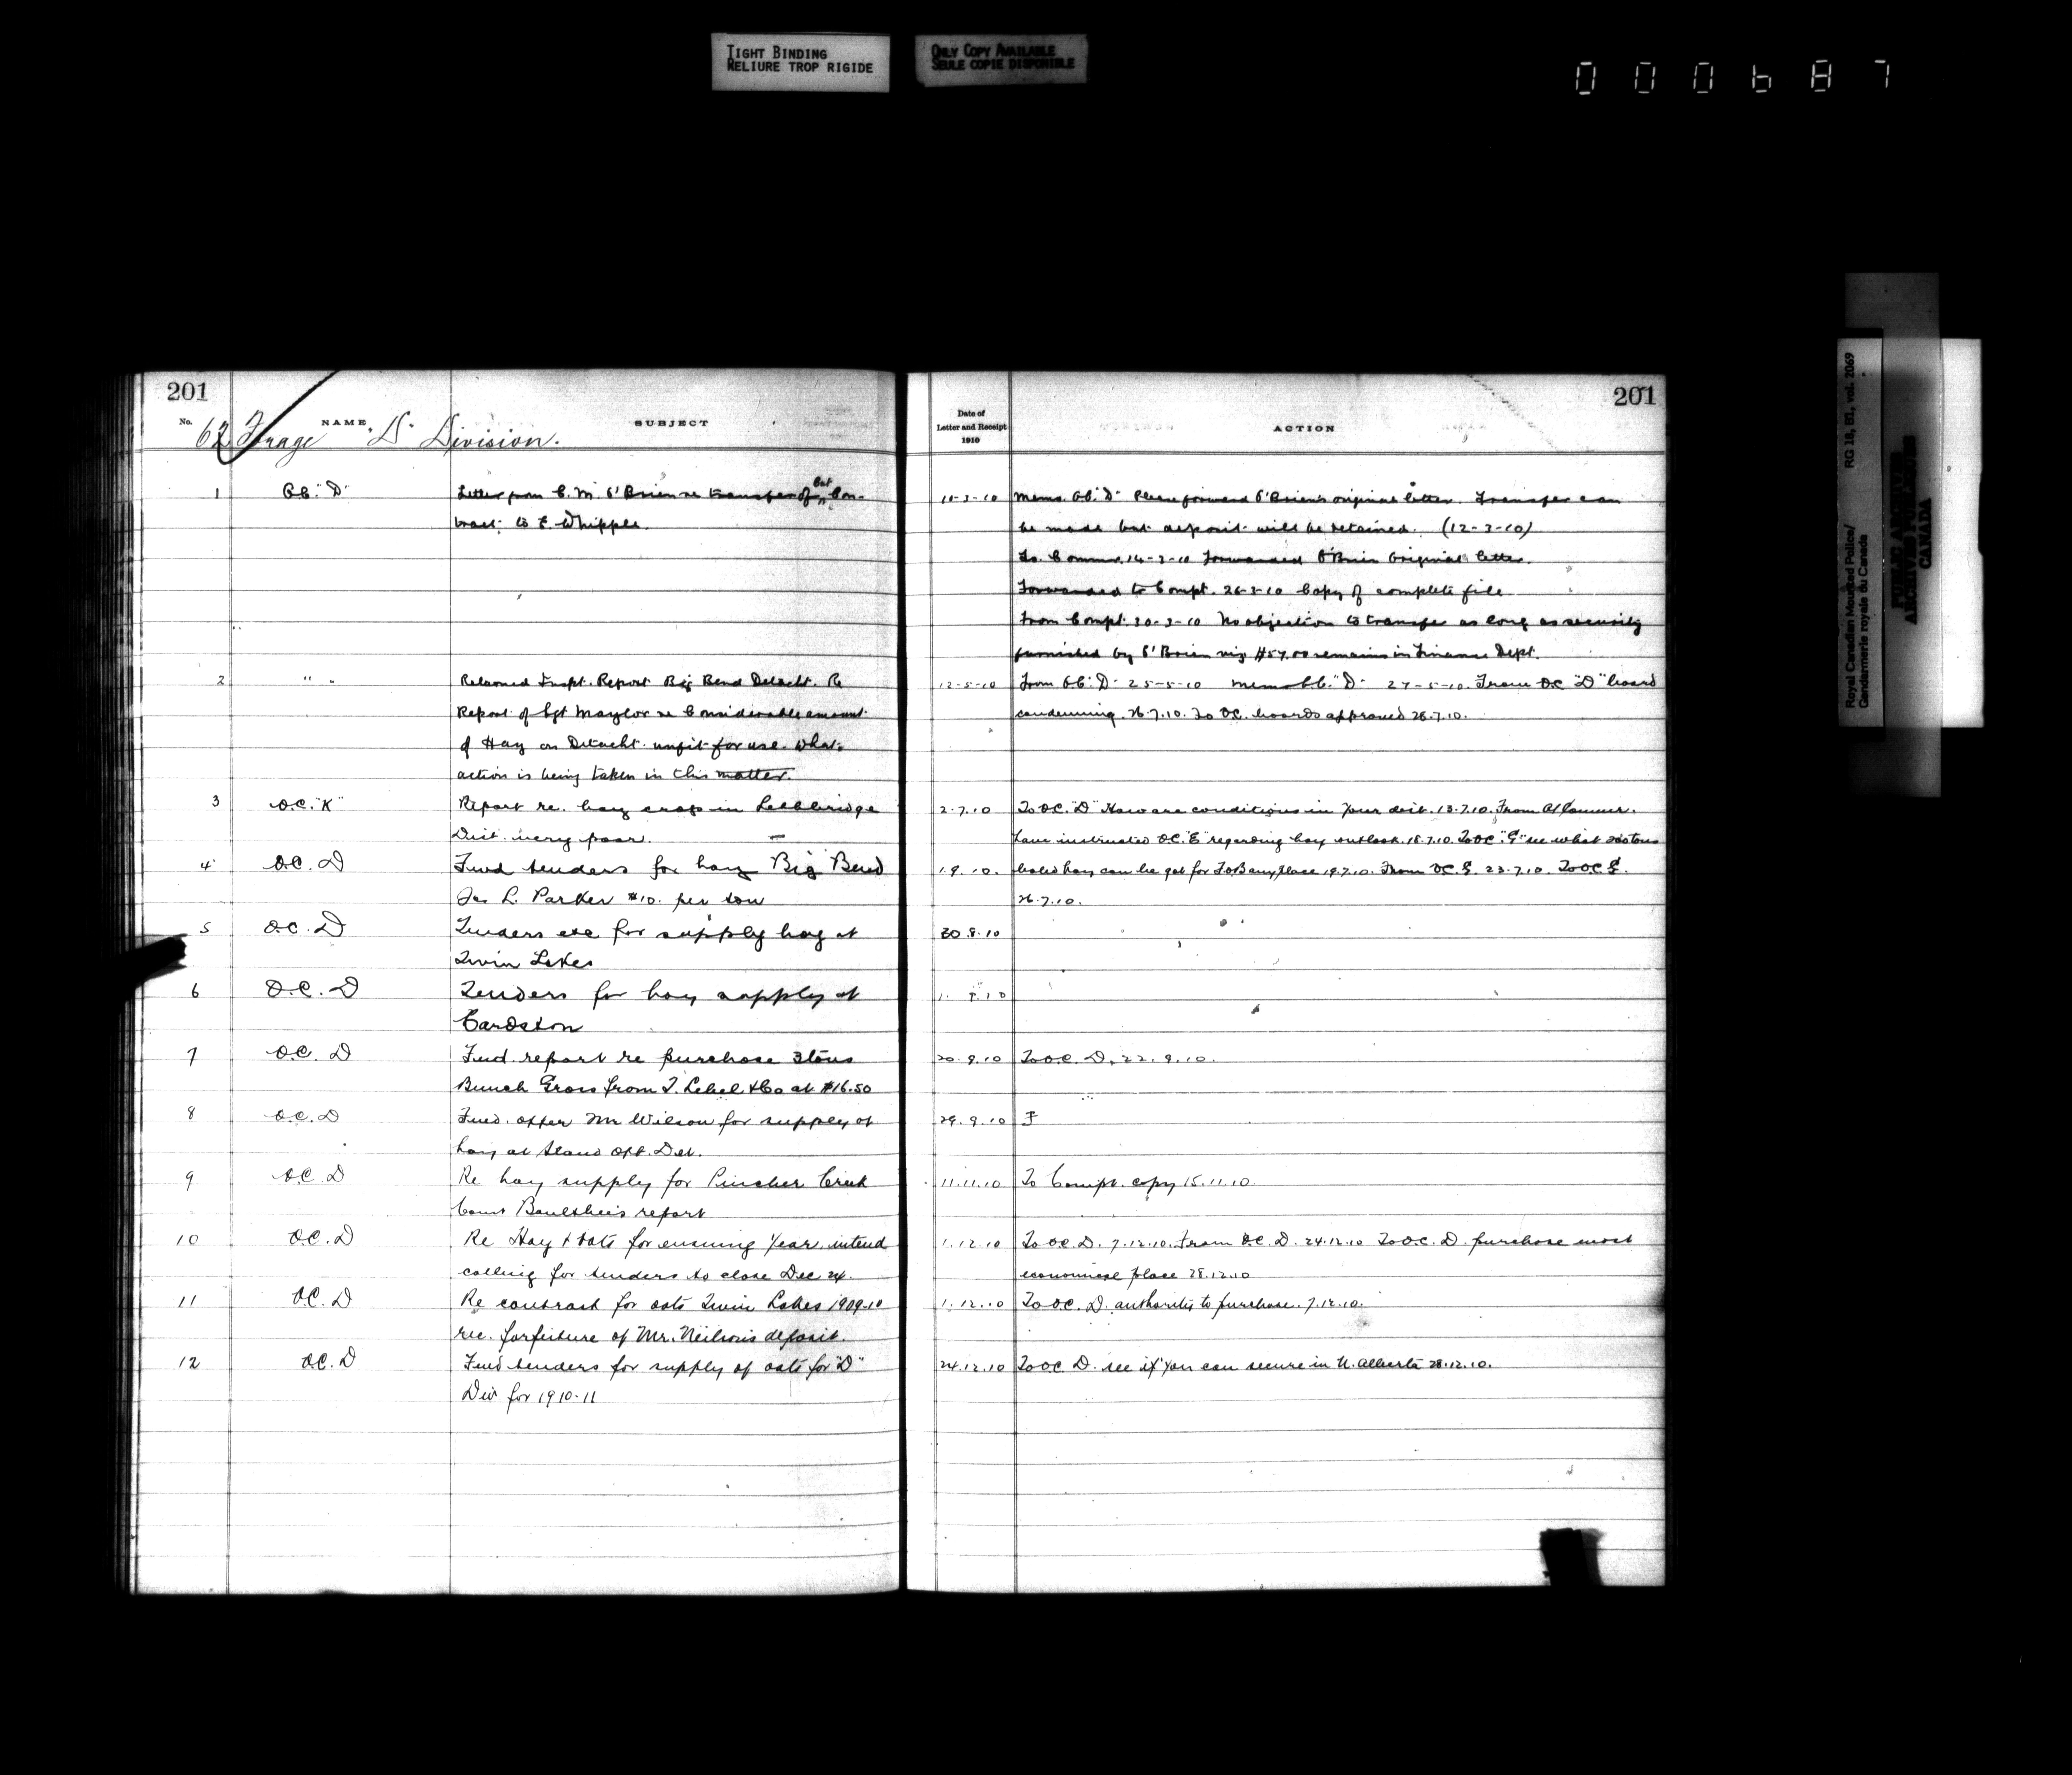 TIGHT BINDING
RELIURE TROP RIGIDE
ONLY COPY AVAILABLE
SEULE COPIE DISPONIBLE
000687
201
No. NAME SUBJECT
62 Forage "D" Division.
1 O.C. "D" Letter from C. M. O'Brien re transfer of Oat Con-
tract to E. Whipple.
2 " " Returned Inspt. Report Big Bend Detacht. Re
Report of Sgt Maylor re Considerable amount
of Hay on Detacht. unfit for use. What
action is being taken in this matter.
3 O.C. "K" Report re. hay crop in Lethbridge
Dist. very poor.
4 O.C. D Fwd tenders for hay Big Bend
Jas L. Parker $10. per ton
5 O.C. D Tenders etc for supply hay at
Twin Lakes
6 O.C. D Tenders for hay supply at
Cardston
7 O.C. D Fwd. report re purchase 3 tons
Bunch Grass from T. Lebel & Co at $16.50
8 O.C. D Fwd. offer Mr Wilson for supply of
hay at Stand Off. Det.
9 O.C. D Re hay supply for Pincher Creek
Const Boulthee's report
10 O.C. D Re Hay & Oats for ensuing year. intend
calling for tenders to close Dec 24.
11 O.C. D Re contract for oats Twin Lakes 1909-10
rec. forfeiture of Mr. Neilson's deposit.
12 O.C. D Fwd tenders for supply of oats for "D"
Div for 1910-11
201
Date of
Letter and Receipt
1910
ACTION
11-3-10 Memo. O.C. "D" Please forward O'Brien's original letter. Transfer can
be made but deposit will be retained. (12-3-10)
To Commr. 14-3-10 Forwarded O'Brien Original letter.
Forwarded to Compt. 26-3-10 Copy of complete file
From Compt. 30-3-10 No objection to transfer as long as security
furnished by O'Brien viz $57.00 remains in Finance Dept.
12-5-10 From O.C. "D" 25-5-10 Memo O.C. "D" 27-5-10. From O.C. "D" board
condemning. 26.7.10. To O.C. boards approved 28.7.10.
2.7.10 To O.C. "D" How are conditions in your dist. 13.7.10. From A/Commr.
have instructed O.C. "E" regarding hay outlook. 18.7.10. To O.C. "G" see what tons
baled hay can be got for F.O.B any place 19.7.10. From O.C. G. 23.7.10. To O.C. G.
26.7.10.
1.9.10.
30.8.10
1. 10
20.9.10 To O.C. D. 22.9.10.
29.9.10 F
11.11.10 To Compt. copy 15.11.10
1.12.10 To O.C. D. 7.12.10. From O.C. D. 24.12.10 To O.C. D. purchase most
economical place 28.12.10
1.12.10 To O.C. D. authority to purchase. 7.12.10.
24.12.10 To O.C. D. see if you can secure in N. Alberta 28.12.10.
Royal Canadian Mounted Police/ RG 18, B1, vol. 2069
Gendarmerie royale du Canada
PUBLIC ARCHIVES
ARCHIVES PUBLIQUES
CANADA